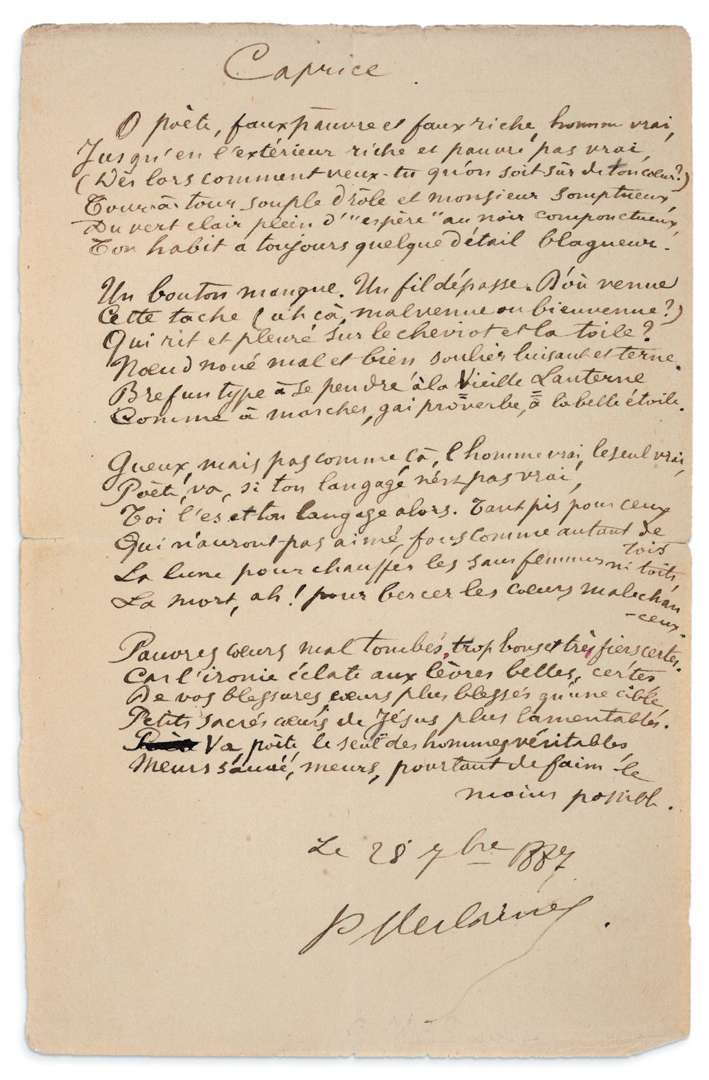 Caprice
O poète, faux pauvre et faux riche, homme vrai,
Jusqu'en l'extérieur riche et pauvre pas vrai,
(Dès lors comment veux-tu qu'on soit sûr de ton cœur?)
Tour-à-tour souple drôle et monsieur somptueux,
Du vert clair plein d'"espère" au noir componctueux,
Ton habit a toujours quelque détail blagueur.
Un bouton manque. Un fil dépasse. D'où venue
Cette tache (ah çà, malvenue ou bienvenue?)
Qui rit et pleure sur le cheviot et la toile?
Nœud noué mal et bien soulier luisant et terne.
Bref un type à se pendre à la Vieille Lanterne
Comme à marcher, gai proverbe, à la belle étoile.
Gueux, mais pas comme çà, l'homme vrai, le seul vrai,
Poète, va, si ton langage n'est pas vrai,
Toi l'es et ton langage alors. Tant pis pour ceux
Qui n'auront pas aimé, fous comme autant de
tois
La lune pour chauffer les sans femmes ni toits,
La mort, ah! pour bercer les cœurs malechan
-ceux.
Pauvres cœurs mal tombés, trop bons et très fiers certes.
Car l'ironie éclate aux lèvres belles, certes
De vos blessures cœurs plus blessés qu'une cible,
Petits sacrés cœurs de Jésus plus lamentables.
Va, poète, le seul des hommes véritables,
Meurs sauvé, meurs, pourtant de faim le
moins possible.
Le 28 7bre 1887
P Verlaine.